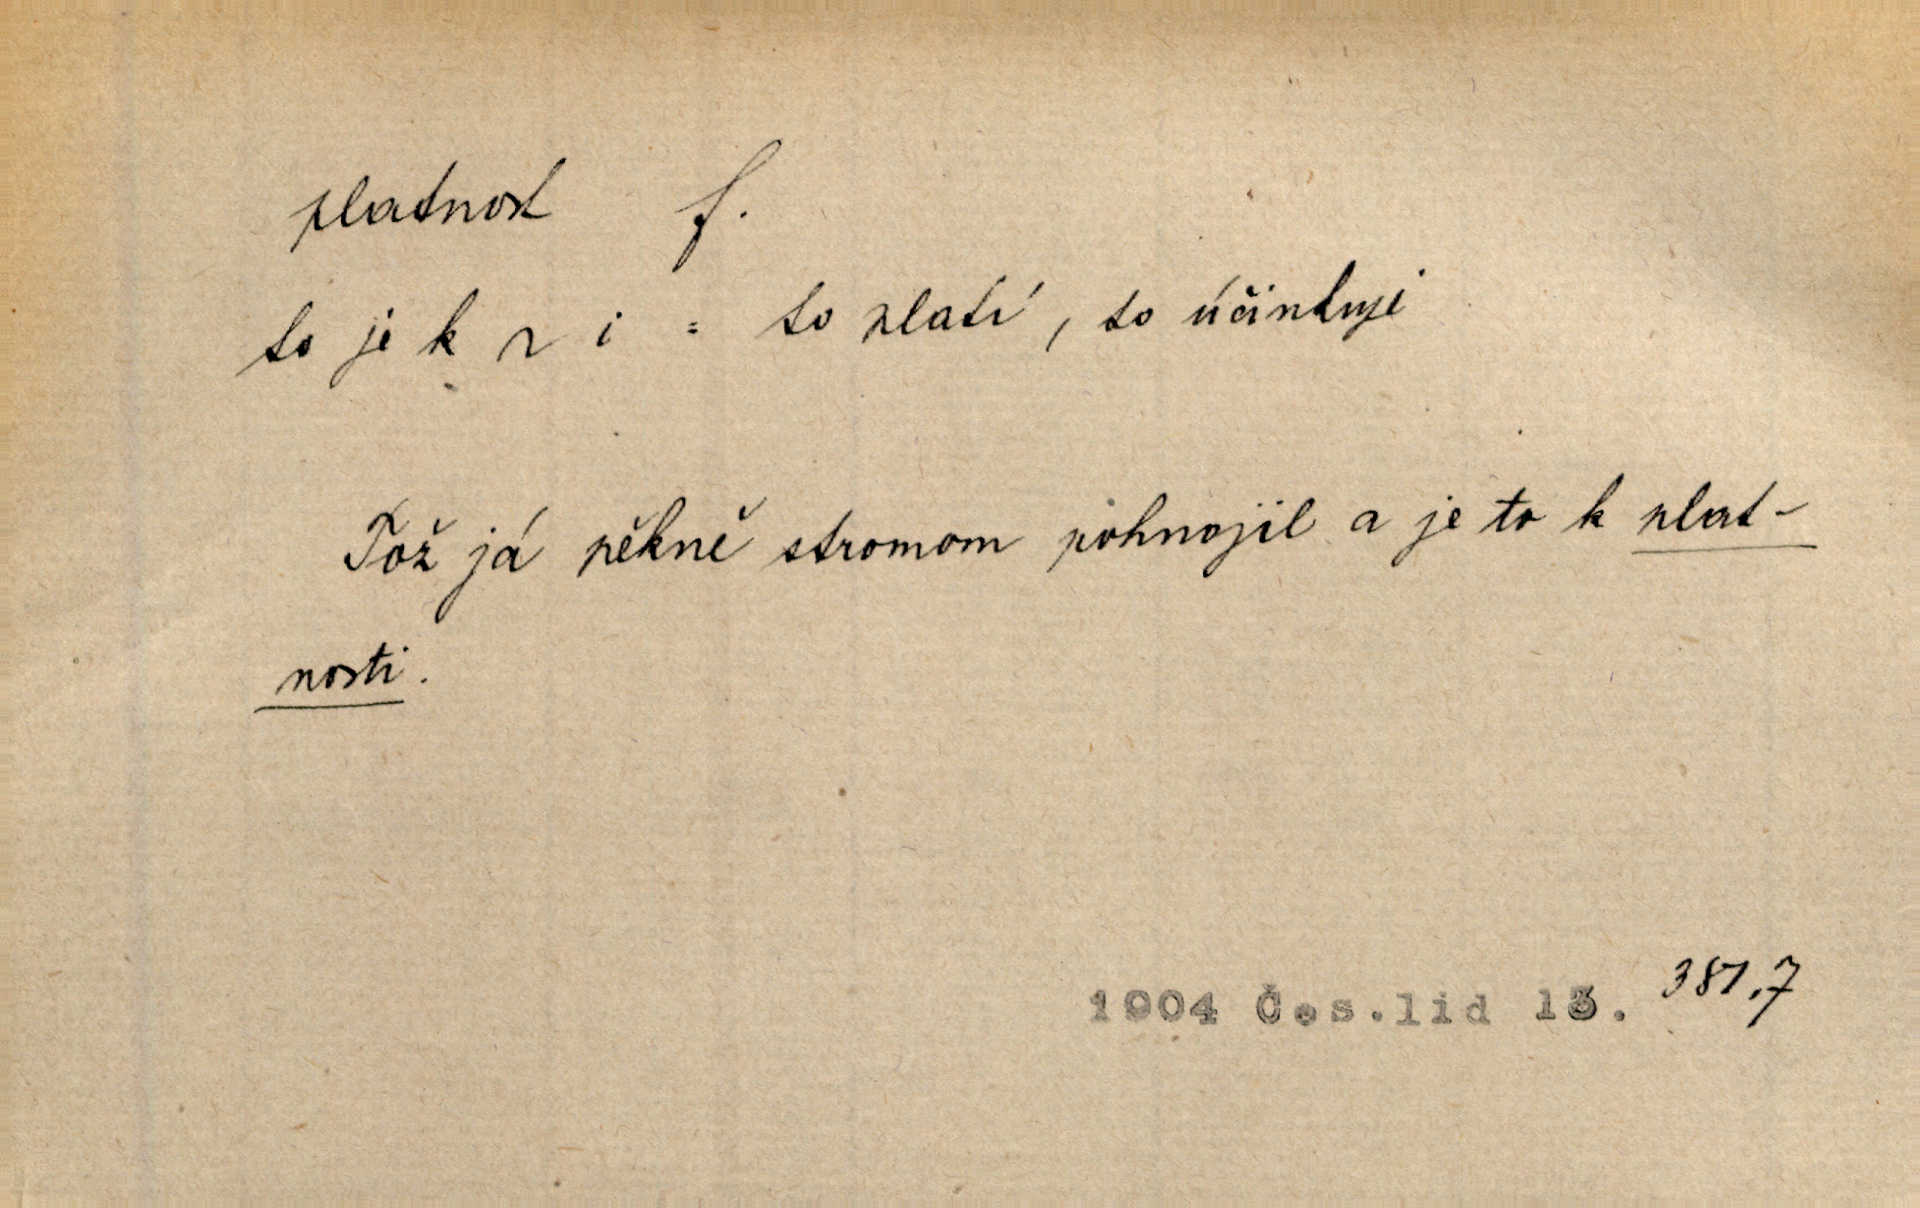 platnost f.
to je k ~ i = to platí, to účinkuje
Tož já pěkně stromom pohnojil a je to k plat-
nosti.
1904 Čes.lid 13. 381,7